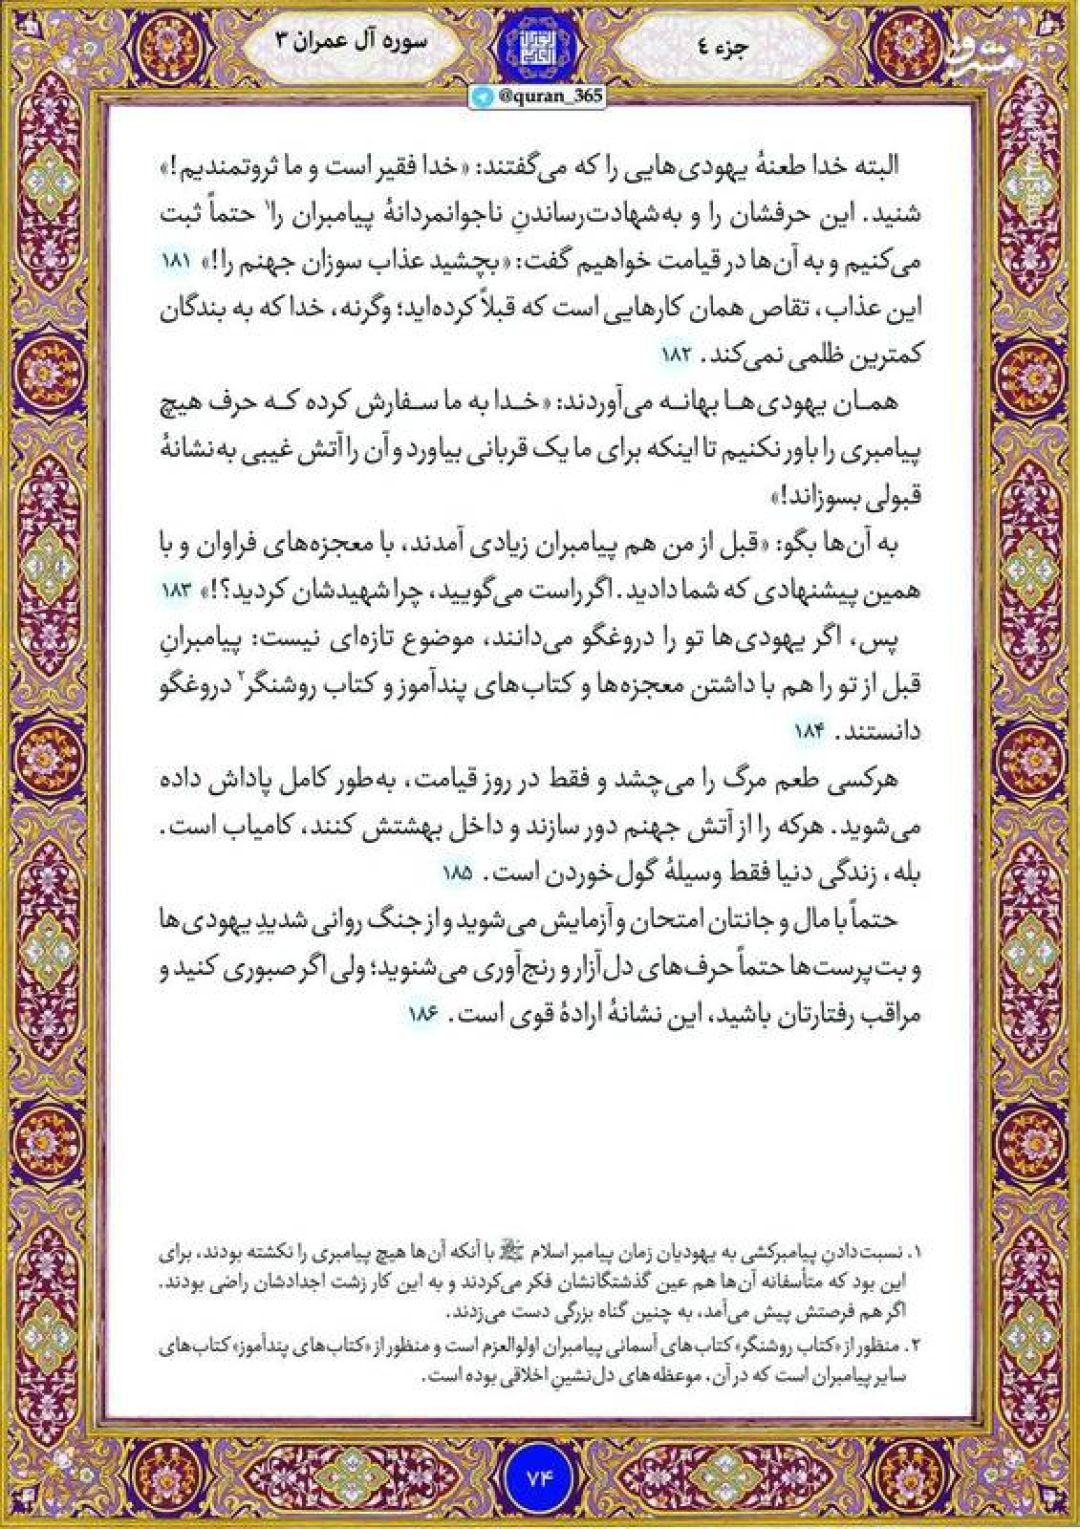 سوره آل عمران ۳
جزء ٤
مشرق
@quran_365
البته خدا طعنهٔ یهودی‌هایی را که می‌گفتند: «خدا فقیر است و ما ثروتمندیم!»
شنید. این حرفشان را و به‌شهادت‌رساندنِ ناجوانمردانهٔ پیامبران را۱ حتماً ثبت
می‌کنیم و به آن‌ها در قیامت خواهیم گفت: «بچشید عذاب سوزان جهنم را!» ۱۸۱
این عذاب، تقاص همان کارهایی است که قبلاً کرده‌اید؛ وگرنه، خدا که به بندگان
کمترین ظلمی نمی‌کند. ۱۸۲
همـان یهودی‌هـا بهانـه می‌آوردند: «خـدا به ما سـفارش کرده کـه حرف هیچ
پیامبری را باور نکنیم تا اینکه برای ما یک قربانی بیاورد و آن را آتش غیبی به نشانهٔ
قبولی بسوزاند!»
به آن‌ها بگو: «قبل از من هم پیامبران زیادی آمدند، با معجزه‌های فراوان و با
همین پیشنهادی که شما دادید. اگر راست می‌گویید، چرا شهیدشان کردید؟!» ۱۸۳
پس، اگر یهودی‌ها تو را دروغگو می‌دانند، موضوع تازه‌ای نیست: پیامبرانِ
قبل از تو را هم با داشتن معجزه‌ها و کتاب‌های پندآموز و کتاب روشنگر۲ دروغگو
دانستند. ۱۸۴
هرکسی طعم مرگ را می‌چشد و فقط در روز قیامت، به‌طور کامل پاداش داده
می‌شوید. هرکه را از آتش جهنم دور سازند و داخل بهشتش کنند، کامیاب است.
بله، زندگی دنیا فقط وسیلهٔ گول‌خوردن است. ۱۸۵
حتماً با مال و جانتان امتحان و آزمایش می‌شوید و از جنگ روانی شدیدِ یهودی‌ها
و بت‌پرست‌ها حتماً حرف‌های دل‌آزار و رنج‌آوری می‌شنوید؛ ولی اگر صبوری کنید و
مراقب رفتارتان باشید، این نشانهٔ ارادهٔ قوی است. ۱۸۶
۱. نسبت‌دادنِ پیامبرکشی به یهودیان زمان پیامبر اسلام ﷺ با آنکه آن‌ها هیچ پیامبری را نکشته بودند، برای
این بود که متأسفانه آن‌ها هم عین گذشتگانشان فکر می‌کردند و به این کار زشت اجدادشان راضی بودند.
اگر هم فرصتش پیش می‌آمد، به چنین گناه بزرگی دست می‌زدند.
۲. منظور از «کتاب روشنگر» کتاب‌های آسمانی پیامبران اولوالعزم است و منظور از «کتاب‌های پندآموز» کتاب‌های
سایر پیامبران است که در آن، موعظه‌های دل‌نشینِ اخلاقی بوده است.
۷۴